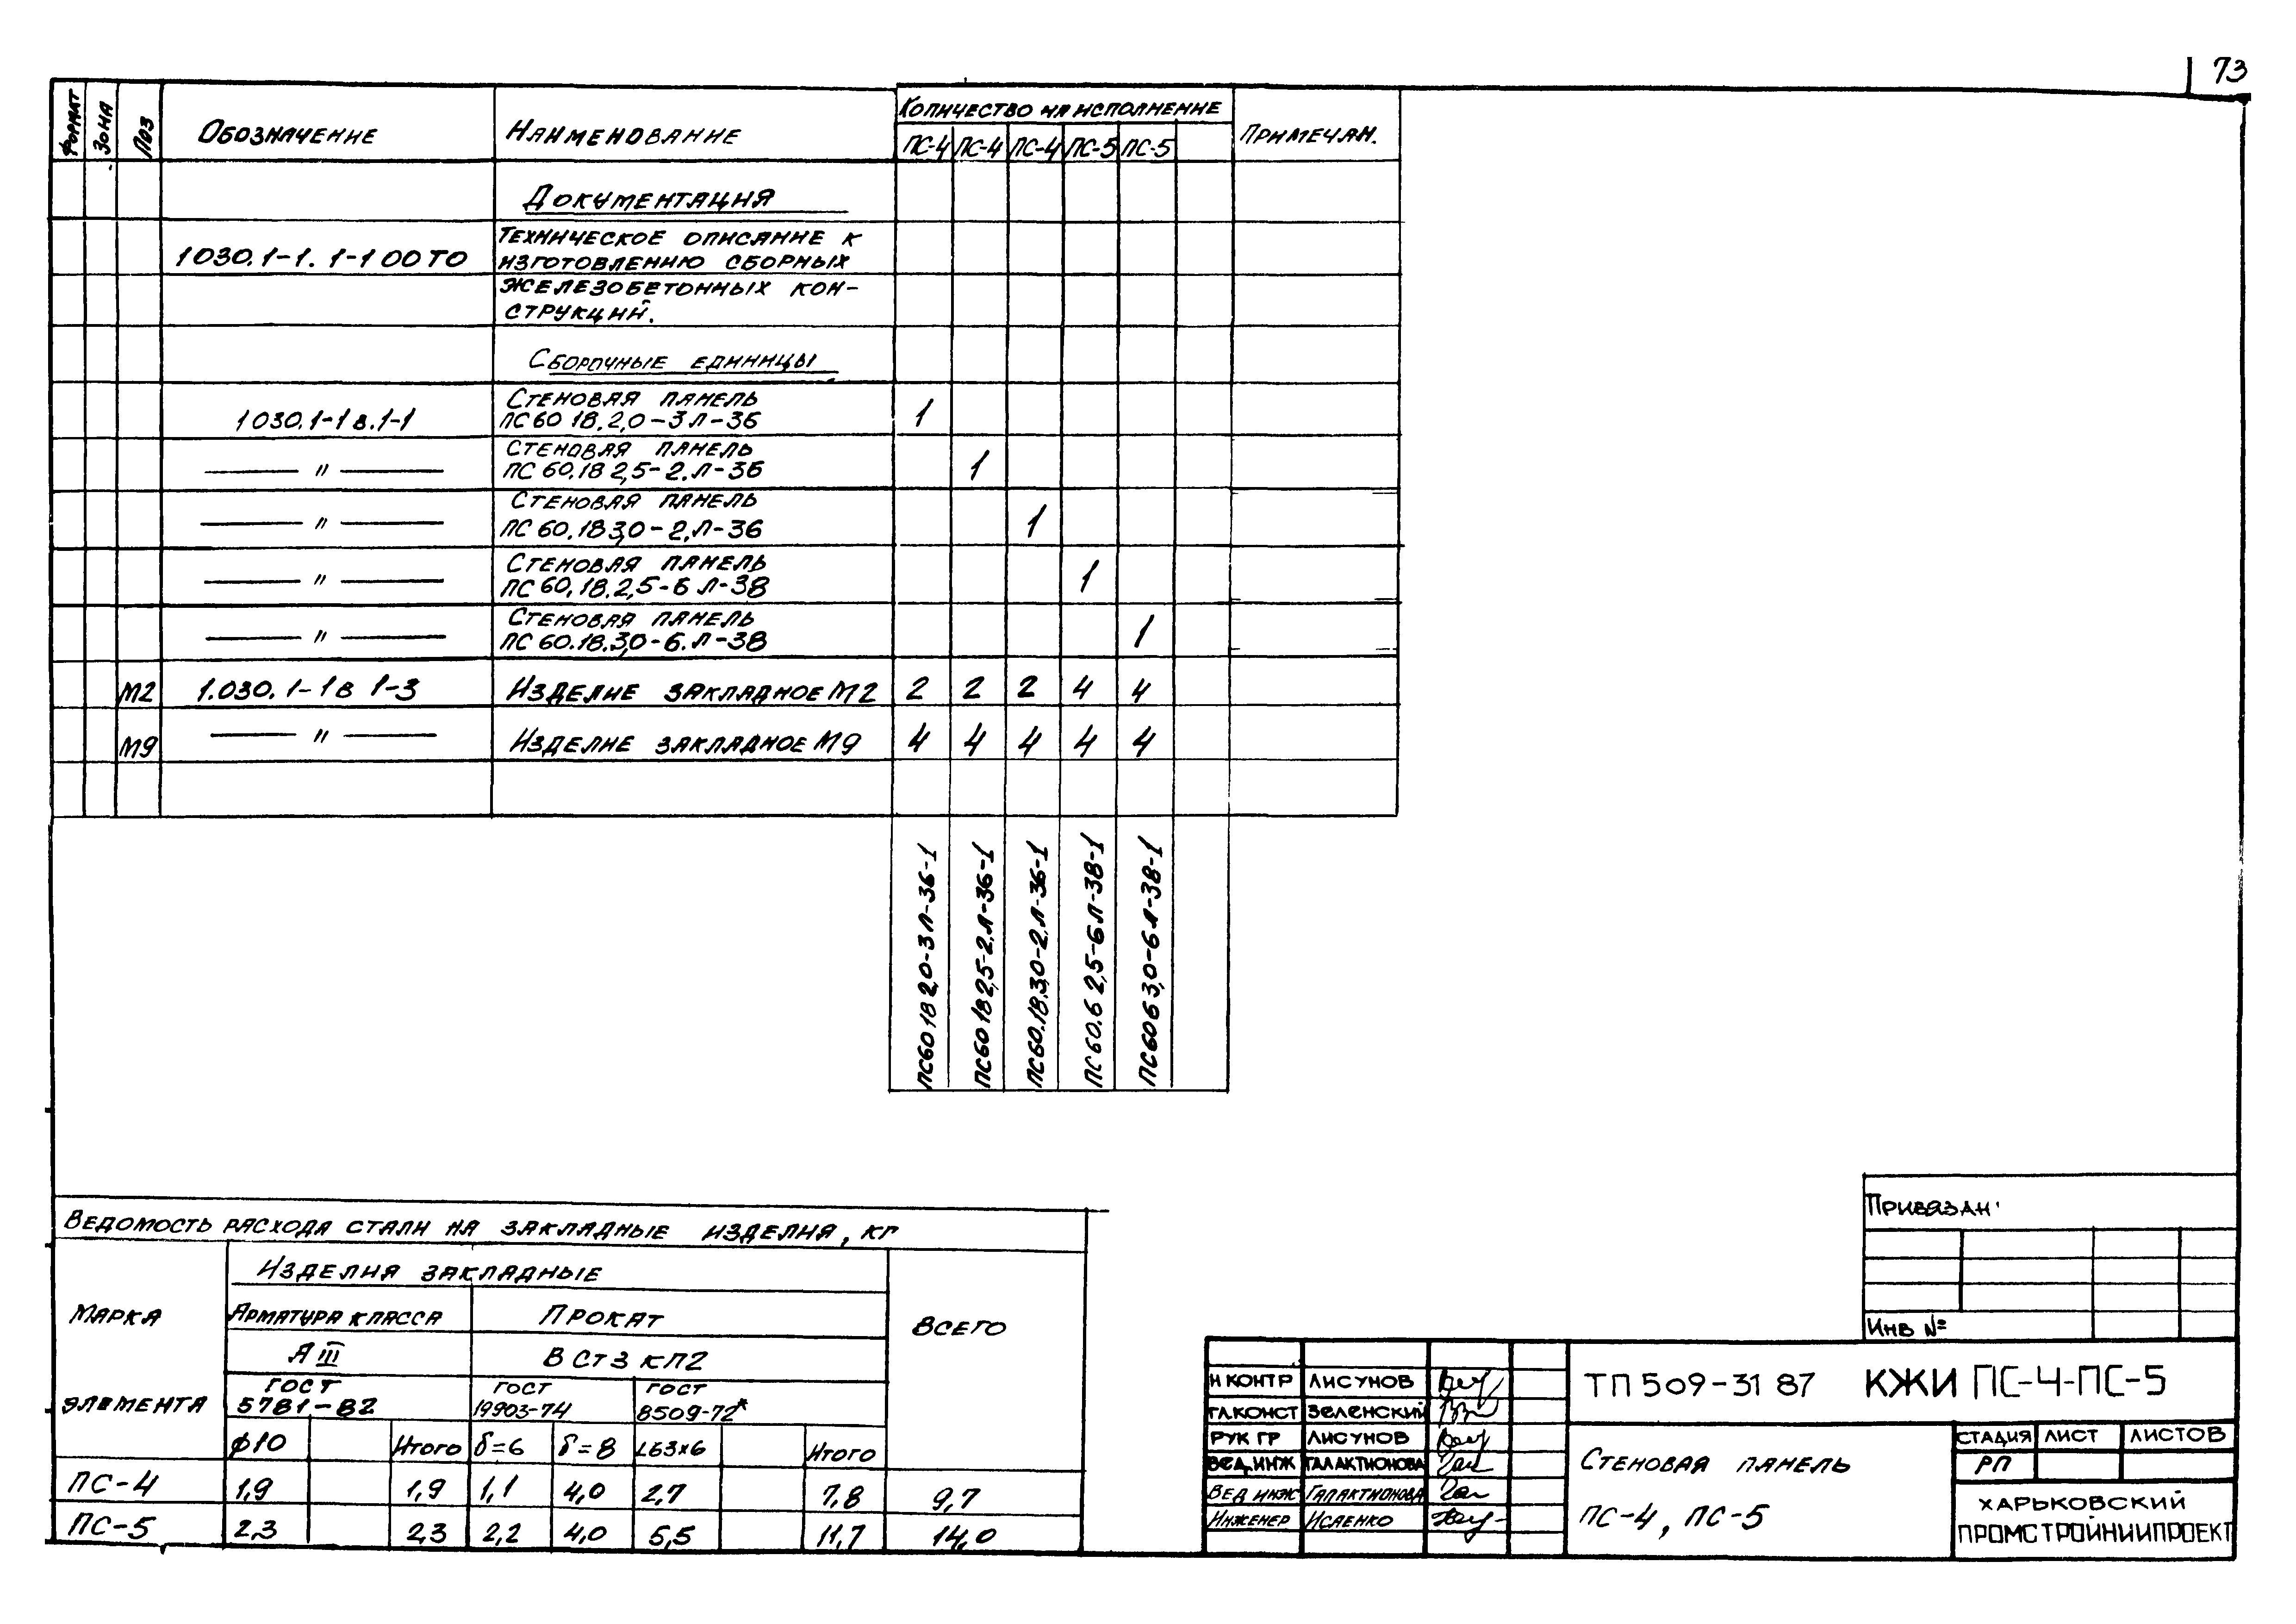 73
ФОРМАТ
ЗОНА
ПОЗ
ОБОЗНАЧЕНИЕ
НАИМЕНОВАНИЕ
КОЛИЧЕСТВО НА ИСПОЛНЕНИЕ
ПРИМЕЧАН.
ПС-4 ПС-4 ПС-4 ПС-5 ПС-5
ДОКУМЕНТАЦИЯ
1030.1-1. 1-1 00 ТО
ТЕХНИЧЕСКОЕ ОПИСАНИЕ К
ИЗГОТОВЛЕНИЮ СБОРНЫХ
ЖЕЛЕЗОБЕТОННЫХ КОН-
СТРУКЦИЙ.
СБОРОЧНЫЕ ЕДИНИЦЫ
СТЕНОВАЯ ПАНЕЛЬ
1030.1-1 в.1-1 ПС 60 18.2,0-3 Л-36 1
СТЕНОВАЯ ПАНЕЛЬ
— " — ПС 60.18 2,5-2.Л-36 1
СТЕНОВАЯ ПАНЕЛЬ
— " — ПС 60.18 3,0-2.Л-36 1
СТЕНОВАЯ ПАНЕЛЬ
— " — ПС 60.18.2,5-6 Л-38 1
СТЕНОВАЯ ПАНЕЛЬ
— " — ПС 60.18.3,0-6.Л-38 1
М2 1.030.1-1 в 1-3 ИЗДЕЛИЕ ЗАКЛАДНОЕ М2 2 2 2 4 4
М9 — " — ИЗДЕЛИЕ ЗАКЛАДНОЕ М9 4 4 4 4 4
ПС60 18 2,0-3 Л-36-1
ПС60 18 2,5-2.Л-36-1
ПС60.18.3,0-2.Л-36-1
ПС 60.6 2,5-6 Л-38-1
ПС 60 6 3,0-6 Л-38-1
ВЕДОМОСТЬ РАСХОДА СТАЛИ НА ЗАКЛАДНЫЕ ИЗДЕЛИЯ, КГ
МАРКА
ЭЛЕМЕНТА
ИЗДЕЛИЯ ЗАКЛАДНЫЕ
ВСЕГО
АРМАТУРА КЛАССА
ПРОКАТ
А III
В СТ 3 КП2
ГОСТ
5781-82
ГОСТ
19903-74
ГОСТ
8509-72*
φ10 ИТОГО δ=6 δ=8 L63х6 ИТОГО
ПС-4 1,9 1,9 1,1 4,0 2,7 7,8 9,7
ПС-5 2,3 2,3 2,2 4,0 5,5 11,7 14,0
ПРИВЯЗАН:
ИНВ №
Н КОНТР ЛИСУНОВ
ГЛ.КОНСТ ЗЕЛЕНСКИЙ
РУК ГР ЛИСУНОВ
ВЕД.ИНЖ ГАЛАКТИОНОВА
ВЕД ИНЖ ГАЛАКТИОНОВА
ИНЖЕНЕР ИСАЕНКО
ТП 509-31 87 КЖИ ПС-4-ПС-5
СТЕНОВАЯ ПАНЕЛЬ
ПС-4, ПС-5
СТАДИЯ ЛИСТ ЛИСТОВ
РП
ХАРЬКОВСКИЙ
ПРОМСТРОЙНИИПРОЕКТ